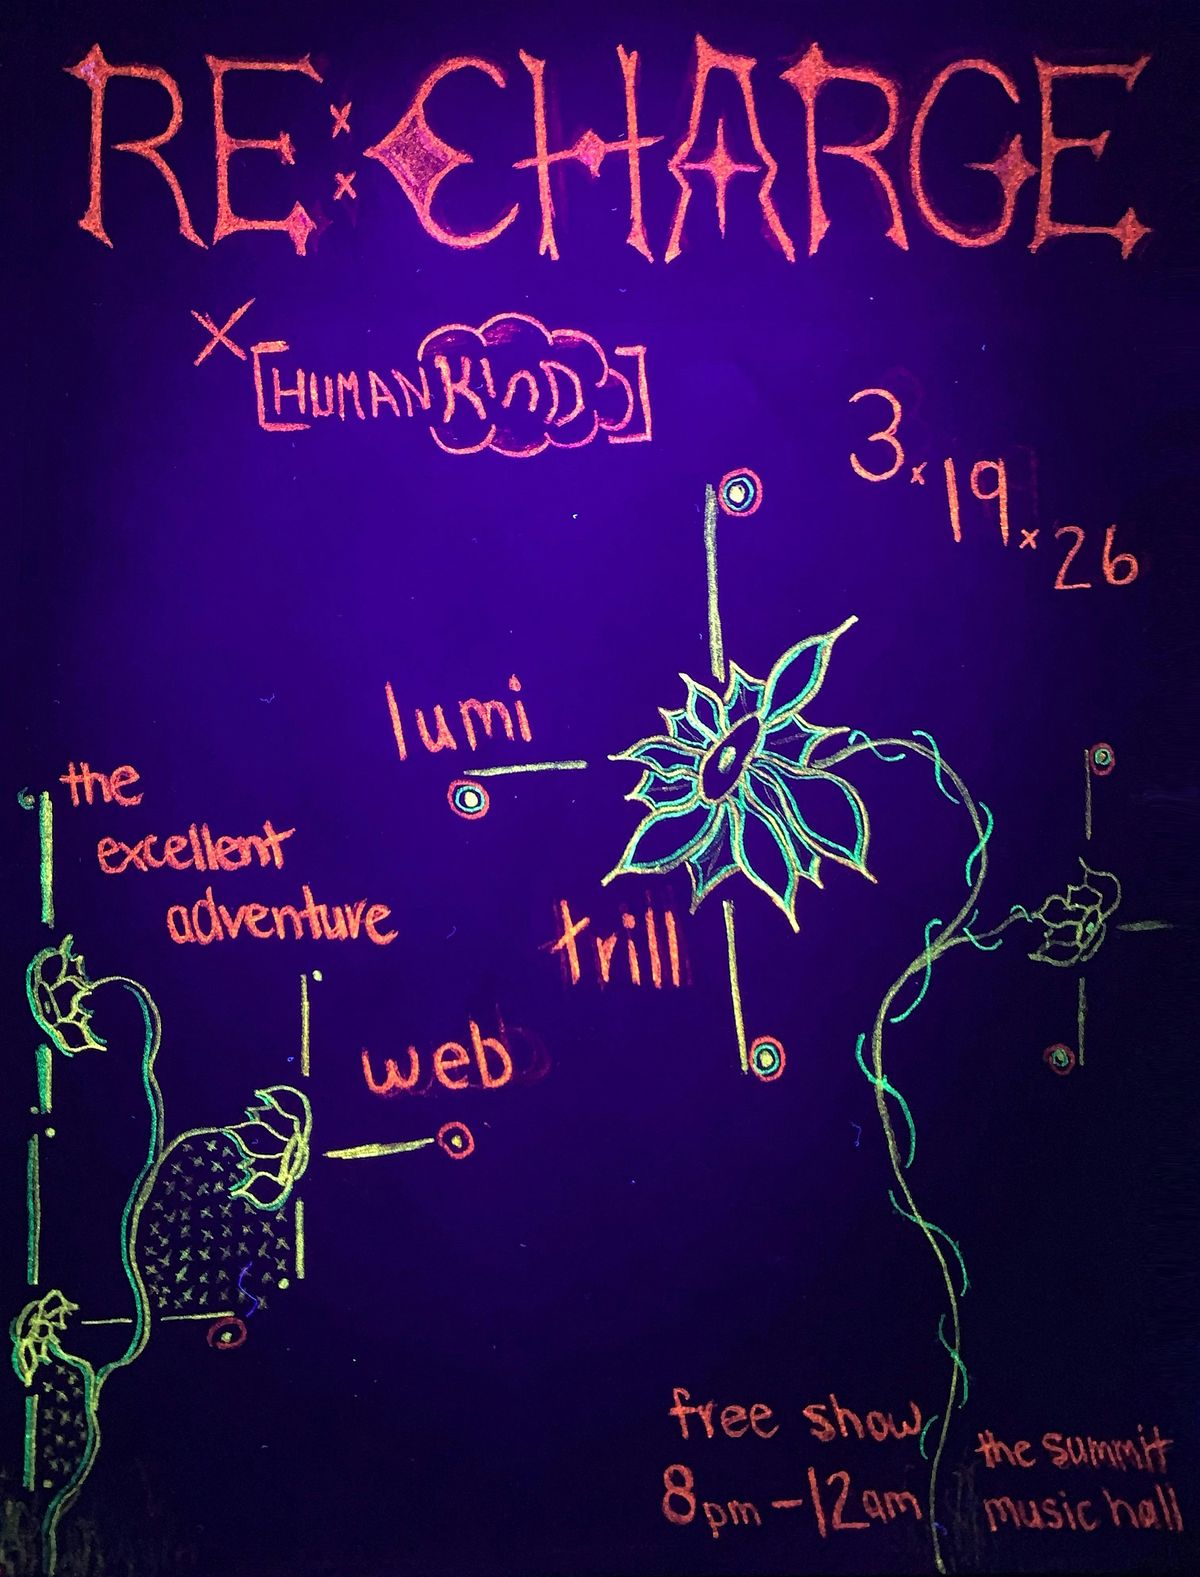 RE:CHARGE
x [HUMANKIND]
3x19x26
lumi
the
excellent
adventure
trill
web
free show
8pm-12am
the summit
music hall